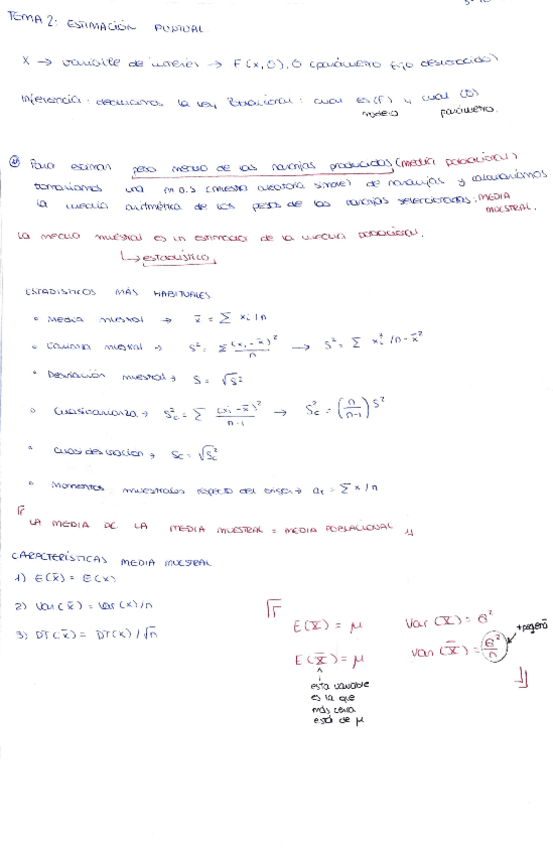 TEMA 2: ESTIMACIÓN PUNTUAL
X → variable de interés → F(x, θ), θ (parámetro fijo desconocido)
Inferencia: decidimos la ley poblacional: cual es (F) y cual (θ)
modelo parámetro.
Para estimar peso medio de las naranjas producidas (media poblacional)
tomaríamos una m.a.s (muestra aleatoria simple) de naranjas y calcularíamos
la media aritmética de los pesos de las naranjas seleccionadas. MEDIA
MUESTRAL.
La media muestral es un estimador de la media poblacional.
↳ estadístico.
ESTADÍSTICOS MÁS HABITUALES
• Media muestral → x̄ = Σ xi/n
• Varianza muestral → S² = Σ (xi - x̄)²/n → S² = Σ xi²/n - x̄²
• Desviación muestral → S = √S²
• Cuasivarianza → Sc² = Σ (xi - x̄)²/n-1 → Sc² = (n/n-1) S²
• Cuasidesviación → Sc = √Sc²
• Momentos muestrales respecto del origen → ar = Σ x/n
LA MEDIA DE LA MEDIA MUESTRAL = MEDIA POBLACIONAL
CARACTERÍSTICAS MEDIA MUESTRAL
1) E(x̄) = E(x)
2) Var(x̄) = Var(x)/n
3) DT(x̄) = DT(x)/√n
E(X) = μ Var(X) = σ²
E(X̄) = μ Var(X̄) = σ²/n
esta variable
es la que
más cerca
está de μ